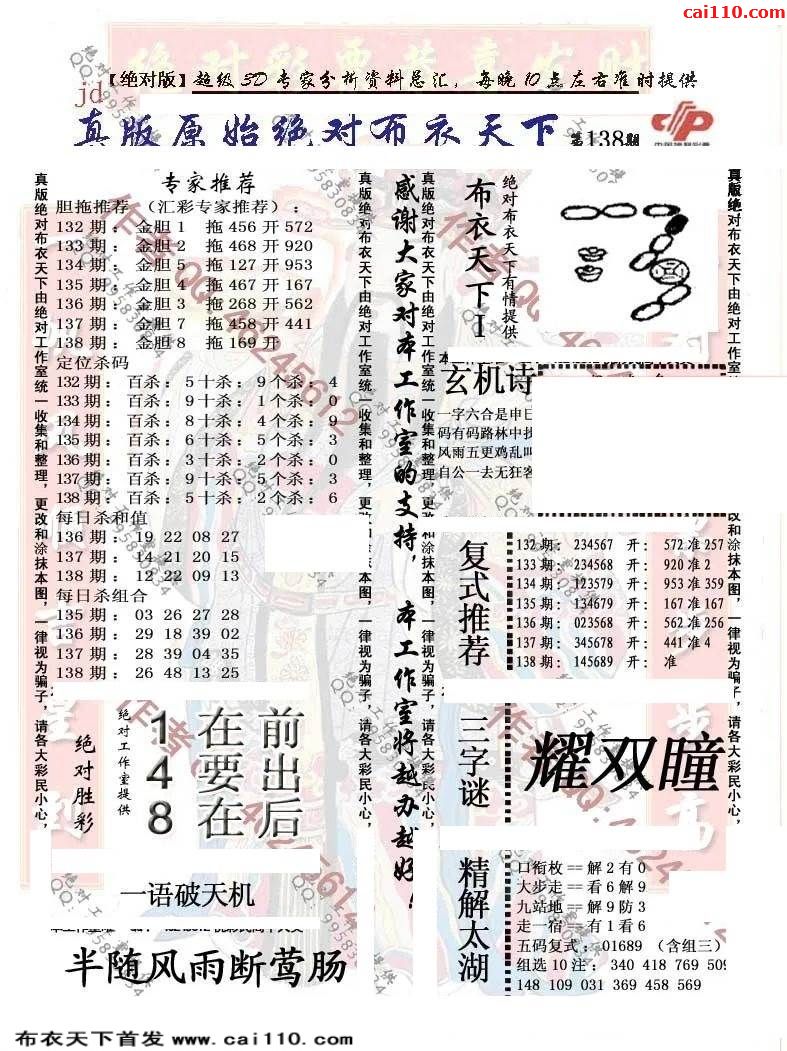 cai110.com
【绝对版】超级3D专家分析资料总汇，每晚10点左右准时提供
jd
真版原始绝对布衣天下 第138期
真版绝对布衣天下由绝对工作室统一收集和整理，更改和涂抹本图，一律视为骗子，请各大彩民小心，
专家推荐
胆拖推荐 （汇彩专家推荐）：
132期： 金胆1 拖456开572
133期： 金胆2 拖468开920
134期： 金胆5 拖127开953
135期： 金胆4 拖467开167
136期： 金胆3 拖268开562
137期： 金胆7 拖458开441
138期： 金胆8 拖169开
定位杀码
132期： 百杀：5十杀：9个杀：4
133期： 百杀：9十杀：1个杀：0
134期： 百杀：8十杀：4个杀：9
135期： 百杀：6十杀：5个杀：3
136期： 百杀：3十杀：2个杀：0
137期： 百杀：9十杀：5个杀：3
138期： 百杀：5十杀：2个杀：6
每日杀和值
136期： 19 22 08 27
137期： 14 21 20 15
138期： 12 22 09 13
每日杀组合
135期： 03 26 27 28
136期： 29 18 39 02
137期： 28 39 04 35
138期： 26 48 13 25
绝对胜彩
绝对工作室提供
1在前
4要出
8在后
一语破天机
半随风雨断莺肠
感谢大家对本工作室的支持，本工作室将越办越好！
真版绝对布衣天下由绝对工作室统一收集和整理，更改和涂抹本图，一律视为骗子，请各大彩民小心，
布衣天下I
绝对布衣天下有情提供
玄机诗
一字六合是申
码有码路林中找
风雨五更鸡乱叫
自公一去无狂客
复式推荐
132期： 234567 开： 572准257
133期： 234568 开： 920准2
134期： 123579 开： 953准359
135期： 134679 开： 167准167
136期： 023568 开： 562准256
137期： 345678 开： 441准4
138期： 145689 开： 准
三字谜
耀双瞳
精解太湖
口衔枚==解2有0
大步走==看6解9
九站地==解9防3
走一宿==有1看6
五码复式：01689 （含组三）
组选10注： 340 418 769 509
148 109 031 369 458 569
布衣天下首发 www.cai110.com